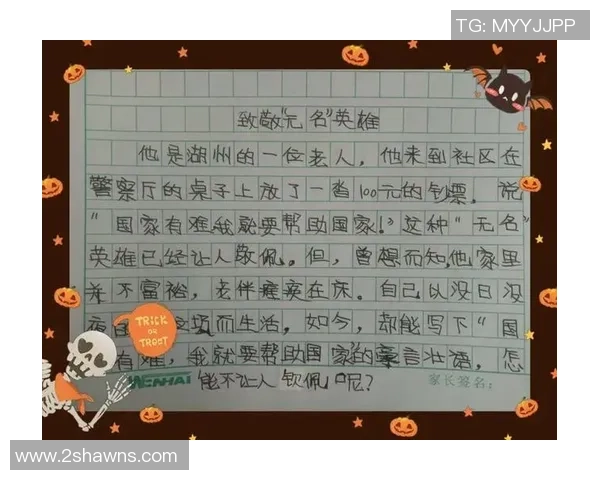 TG: MYYJJPP
致敬“无名”英雄
他是湖州的一位老人，他来到社区在
警察厅的桌子上放了一沓100元的钞票。说
“国家有难，我就要帮助国家！”这种“无名”
英雄已经让人敬佩。但，曾想而知，他家里
并不富裕，老伴瘫痪在床。自己以没日没
夜 而生活，如今，却能写下“国
有难，我就要帮助国家”的豪言壮语，怎
能不让人钦佩呢？
TRICK
OR
TROOT
WENHAI
家长签名：
www.2shawns.com